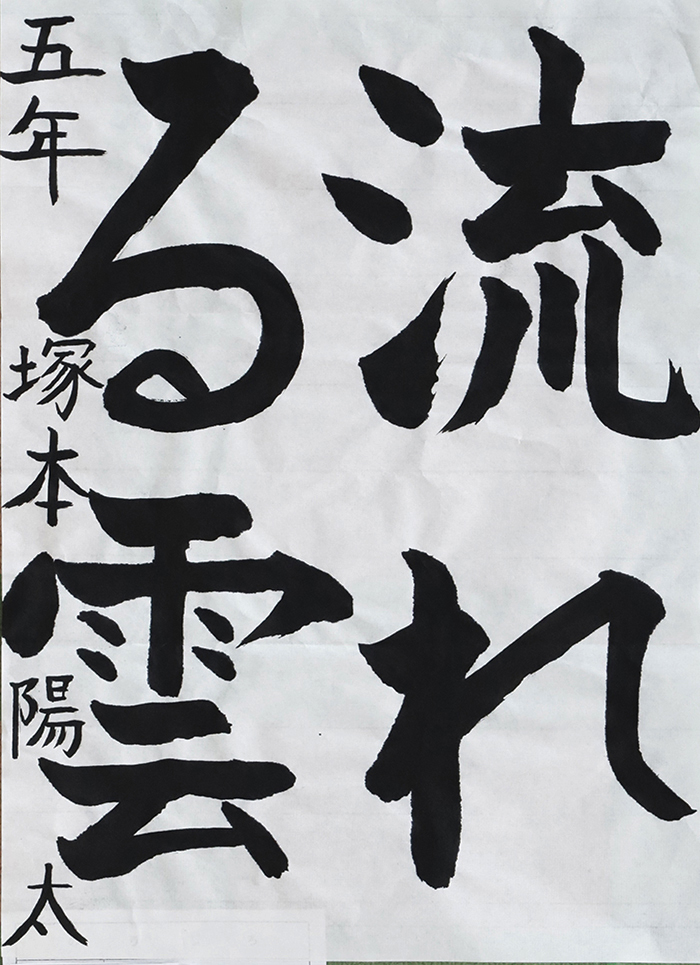 流れ
る雲
五年 塚本陽太